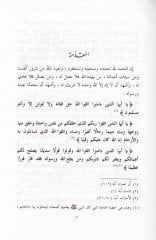 المقدمة
إن الحمد لله نحمده ونستعينه ونستغفره ، ونعوذ بالله من شرور أنفسنا
ومن سيئات أعمالنا ، من يهده الله فلا مضل له ، ومن يضلل فلا هادي
له ، وأشهد أن لا إله إلا الله وحده لا شريك له ، وأشهد أن محمدًا عبده
ورسوله .
﴿ يا أيها الذين آمنوا اتقوا الله حق تقاته ولا تموتن إلا وأنتم
مسلمون ﴾
﴿ يا أيها الناس اتقوا ربكم الذي خلقكم من نفس واحدة وخلق
منها زوجها وبث منهما رجالًا كثيرًا ونساء واتقوا الله الذي تساءلون به
والأرحام إن الله كان عليكم رقيبًا ﴾
﴿ يا أيها الذين آمنوا اتقوا الله وقولوا قولًا سديدًا يصلح لكم
أعمالكم ويغفر لكم ذنوبكم ومن يطع الله ورسوله فقد فاز فوزًا
عظيمًا ﴾
(١) آل عمران آية
(٢) النساء آية
(٣) الأحزاب آية